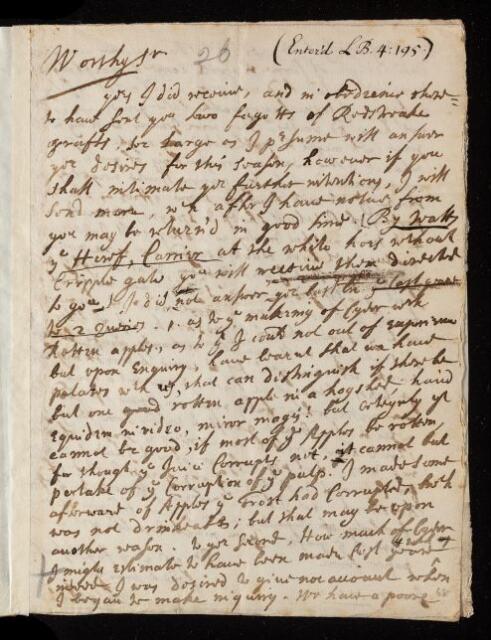 Worthy Sr 26 (Enter'd LB. 4: 195.)
yrs I did receive, and in obedience there=
to have sent you two fagotts of Redstreake
grafts, soe large as I p'sume will answer
yor desires for this season, however if you
shall intimate yor further intentions, I will
send more, wch after I have notice from
you may be return'd in good time. By Watts
ye Heref. Carrier at the white hors without
Cripple gate, you will receive them directed
to you. I did not answer yor last
2 Queries. 1. as to ye making of Cyder with
Rotten apples, as to yt I could not out of Experience
but upon Enquiry, have learnt that we have
palates wth us, that can distinguish if there be
but one rotten apple in a hogshed
Equidem invideo, miror magis: but certenly yt
cannot be good, if most of ye Apples be rotten,
for though ye Juice Corrupts not, it cannot but
pertake of ye Corruption of ye pulp. I made some
afterward of Apples ye frost had Corrupted, wch
was not drinkeable; but that may be upon
another reason. To yor second, How much Cyder
I might estimate to have been made last yeare
indeed I was desired to give not account when
I began to make inquiry. We have a poore